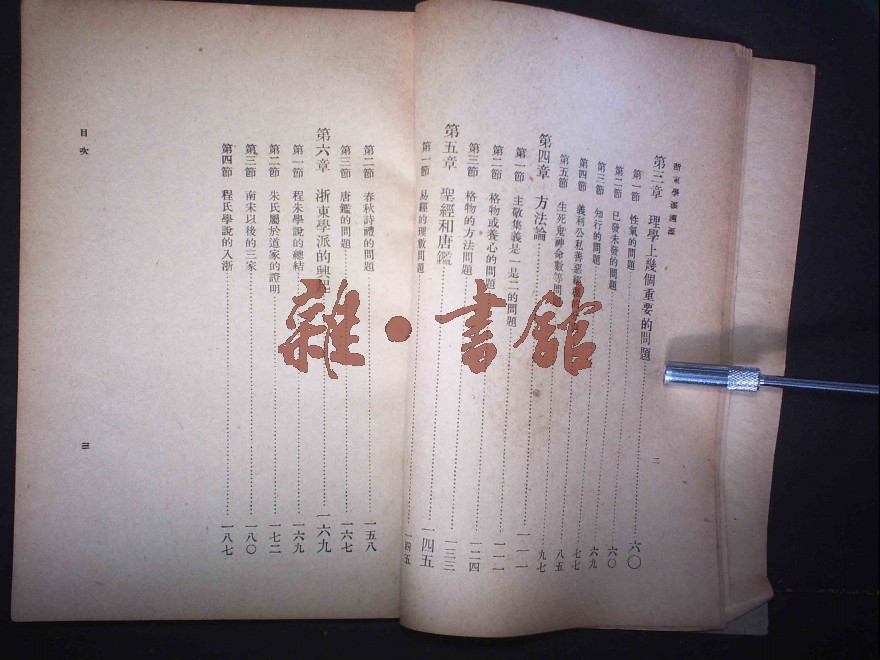 浙東學派溯源
第三章 理學上幾個重要的問題……六〇
第一節 性氣的問題……六〇
第二節 已發未發的問題……六九
第三節 知行的問題……七七
第四節 義利公私善惡……八五
第五節 生死鬼神命數等問……九七
第四章 方法論……一一一
第一節 主敬集義是一是二的問題……一一一
第二節 格物或養心的問題……一二四
第三節 格物的方法問題……一三三
第五章 聖經和唐鑑……一四五
第一節 易經的理數問題……一四五
二
第二節 春秋詩禮的問題……一五八
第三節 唐鑑的問題……一六七
第六章 浙東學派的興起……一六九
第一節 程朱學說的總結……一六九
第二節 朱氏屬於道家的證明……一七二
第三節 南宋以後的三家……一八〇
第四節 程氏學說的入浙……一八七
目次
三
雜·書館